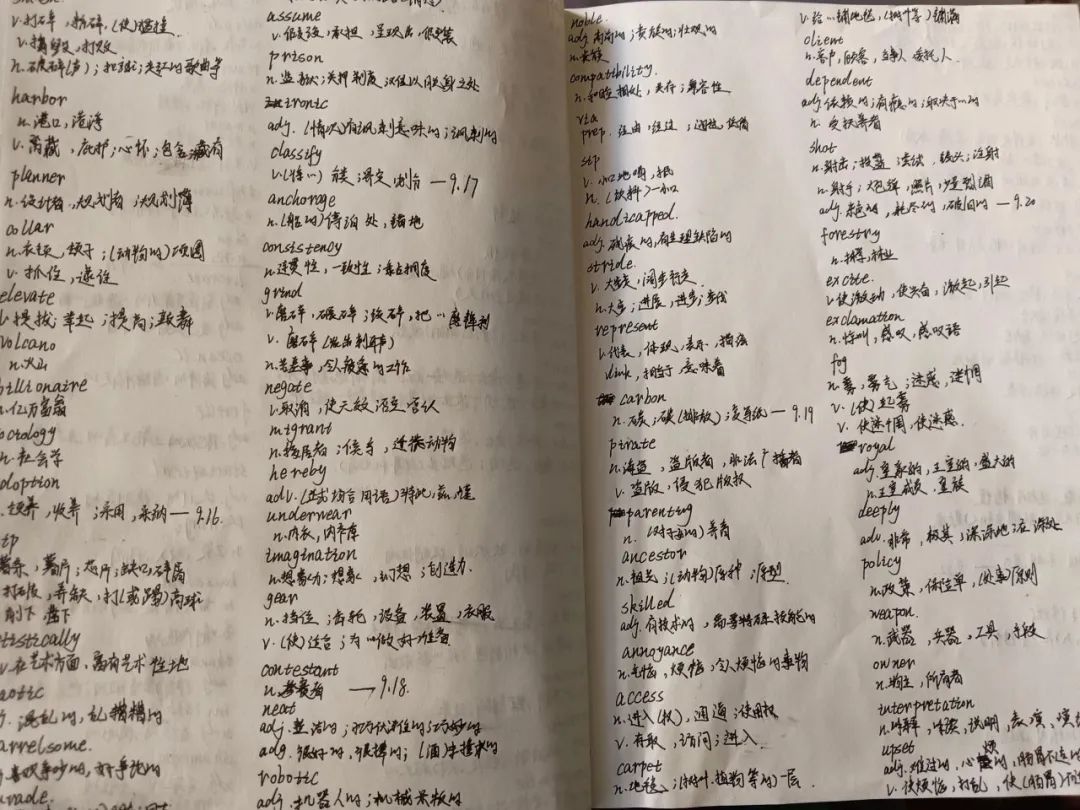 v.打碎，粉碎，(使)
v.摧毁，打败
harbor
n.港口，港湾
v.窝藏，庇护；心怀；包含，藏有
planner
n.设计者，规划者；规划簿
collar
n.衣领，领子；(动物的)项圈
v.抓住，逮住
elevate
v.提拔；举起；提高；
volcano
n.火山
billionaire
n.亿万富翁
ociology
n.社会学
doption
领养，收养；采用，采纳—9.16.
薯条，薯片；芯片；缺口，碎屑
削下 凿下
tistically
v.在艺术方面，富有艺术性地
aotic
混乱的，乱糟糟的
arrelsome.
喜欢争吵的，好争论的
vade.
assume
v.假设，承担，呈现出，假装
prison
n.监狱；关押制度
ironic
adj.(情况)有讽刺意味的；讽刺的
classify
—9.17
anchorage
n.(船的)停泊处，锚地
consistency
n.连贯性，一致性；黏稠度
grind
v.磨碎，碾碎；绞碎，把…磨锋利
v.磨碎(发出刺耳声)
n.苦差事，令人疲惫的工作
negate
v.取消，使无效，否定，否认
migrant
n.移居者；候鸟，迁徙动物
hereby
underwear
n.内衣，内衣裤
imagination
n.想象力；想象，幻想；创造力.
gear
n.挡位；齿轮，设备，装置，衣服
v.(使)适合；为…做好准备
contestant
n.参赛者 —9.18.
neat
adj.整洁的；
adj.很好的，很棒的；(酒)未掺水的
robotic
adj.机器人的；机械呆板的
noble.
adj.高尚的；贵族的；壮观的
n.贵族
compatibility.
n.和睦相处，共存；兼容性
via
prep.经由，经过；通过，凭借
sip
v.小口地喝，抿
n.(饮料)一小口
handicapped.
adj.残疾的，有生理缺陷的
stride.
v.大步走，阔步行走
n.大步；进展，进步；步伐
represent
v.代表，体现，表示，描绘
vlink.相当于，意味着
carbon
n.碳；碳(排放)；复写纸—9.19
pirate
n.海盗，盗版者，非法广播者
v.盗版，侵犯版权
parenting
n.(对子女的)养育
ancestor
n.祖先；(动物)原种；原型.
skilled
adj.有技术的，需要特殊技能的
annoyance
n.气恼，烦恼，令人烦恼的事物
access
n.进入(权)，通道；使用权
v.存取，访问；进入
carpet
n.地毯；(树叶、植物等的)一层
v.给…铺地毯，(树叶等)铺满
client
n.客户，顾客，当事人 委托人
dependent
adj.依赖的；有瘾的；取决于…的
n.受扶养者
shot
n.射击；投篮 尝试，镜头；注射
n.射手；大炮弹，照片，少量烈酒
—9.20
forestry
n.林学，林业
excite.
v.使激动，使兴奋，激起，引起
exclamation
n.惊叫，感叹，感叹语
fog
n.雾，雾气；迷惑，迷惘
v.(使)起雾
v.使迷惘，使迷惑.
royal
adj.皇家的，王室的，盛大的
n.王室成员，皇族
deeply
adv.非常，极其；深深地；在深处
policy
n.政策，保险单，(处事)原则
weapon.
n.武器，兵器，工具，手段
owner
n.物主，所有者
interpretation
n.解释，解读，说明，表演，演
upset 烦
adj.难过的，心的，肠胃不适的
v.使烦恼，打乱，使(肠胃)不